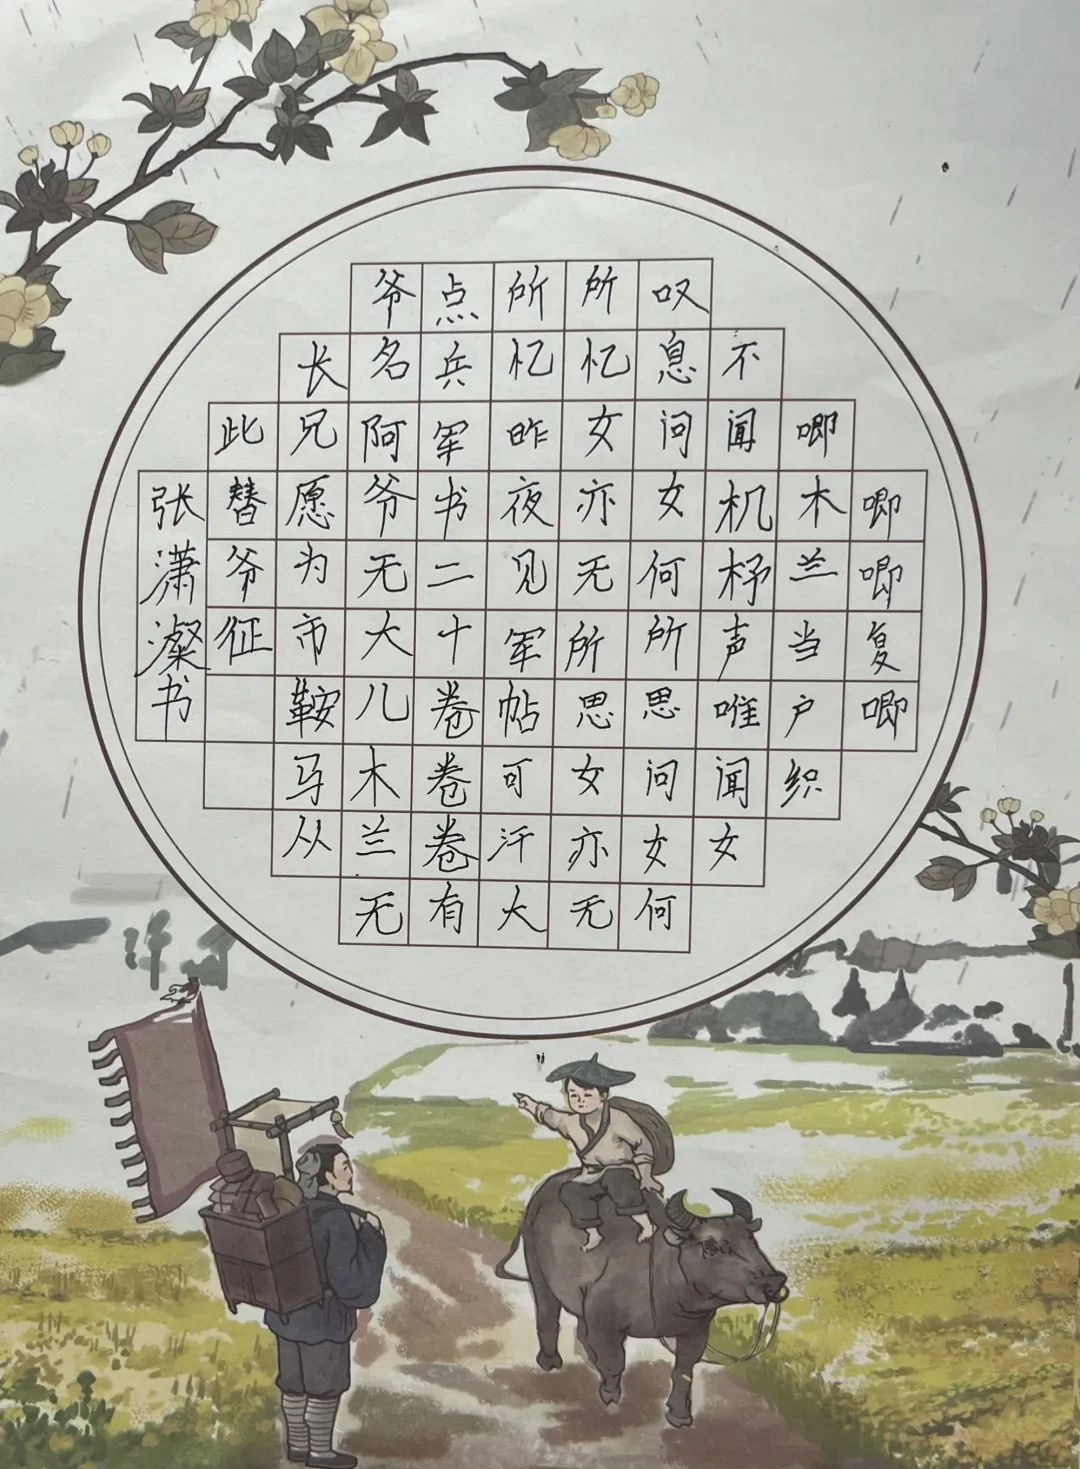 唧唧复唧
唧木兰当户织
不闻机杼声唯闻女
叹息问女何所思问女何
所忆女亦无所思女亦无
所忆昨夜见军帖可汗大
点兵军书二十卷卷卷有
爷名阿爷无大儿木兰无
长兄愿为市鞍马从
此替爷征
张潇澯书